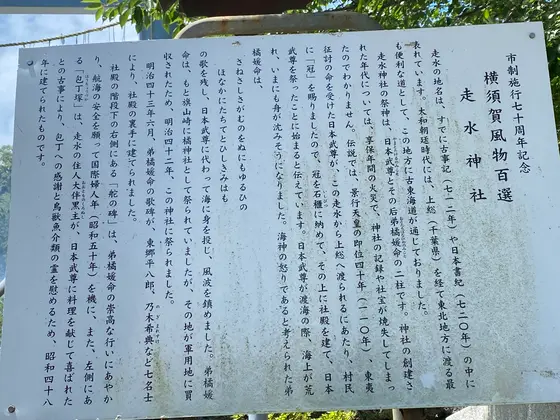 市制施行七十周年記念
横須賀風物百選
走水神社
走水の地名は、すでに古事記（七一二年）や日本書紀（七二〇年）の中に
表れています。大和朝廷時代には、上総（千葉県）を経て東北地方に渡る最
も便利な道として、この地方に古東海道が通じておりました。
走水神社の祭神は、日本武尊とその后弟橘媛命の二柱です。神社の創建さ
れた年代については、享保年間の火災で、神社の記録や社宝が焼失してしまっ
たのでわかりません。伝説では、景行天皇の即位四十年（一一〇年）、東夷
征討の命を受けた日本武尊が、この走水から上総へ渡られるにあたり、村民
に「冠」を賜りましたので、冠を石櫃に納めて、その上に社殿を建て、日本
武尊を祭ったことに始まると伝えています。日本武尊が渡海の際、海上が荒
れ、いまにも舟が沈みそうになりました。海神の怒りであると考えられた弟
橘媛命は、
さねさしさがむのをぬにもゆるひの
ほなかにたちてとひしきみはも
の歌を残し、日本武尊に代わって海に身を投じ、風波を鎮めました。弟橘媛
命は、もと旗山崎に橘神社として祭られていましたが、その地が軍用地に買
収されたため、明治四十二年、この神社に祭られました。
明治四十三年六月、弟橘媛命の歌碑が、東郷平八郎、乃木希典など七名士
により、社殿の裏手に建てられました。
のぎまれすけ
社殿の階段下の右側にある「舵の碑」は、弟橘媛命の崇高な行いにあやか
り、航海の安全を願って国際婦人年（昭和五十年）を機に、また、左側にあ
る「包丁塚」は、走水の住人大伴黒主が、日本武尊に料理を献じて喜ばれた
との古事により、包丁への感謝と鳥獣魚介類の霊を慰めるため、昭和四十八
年に建てられたものです。